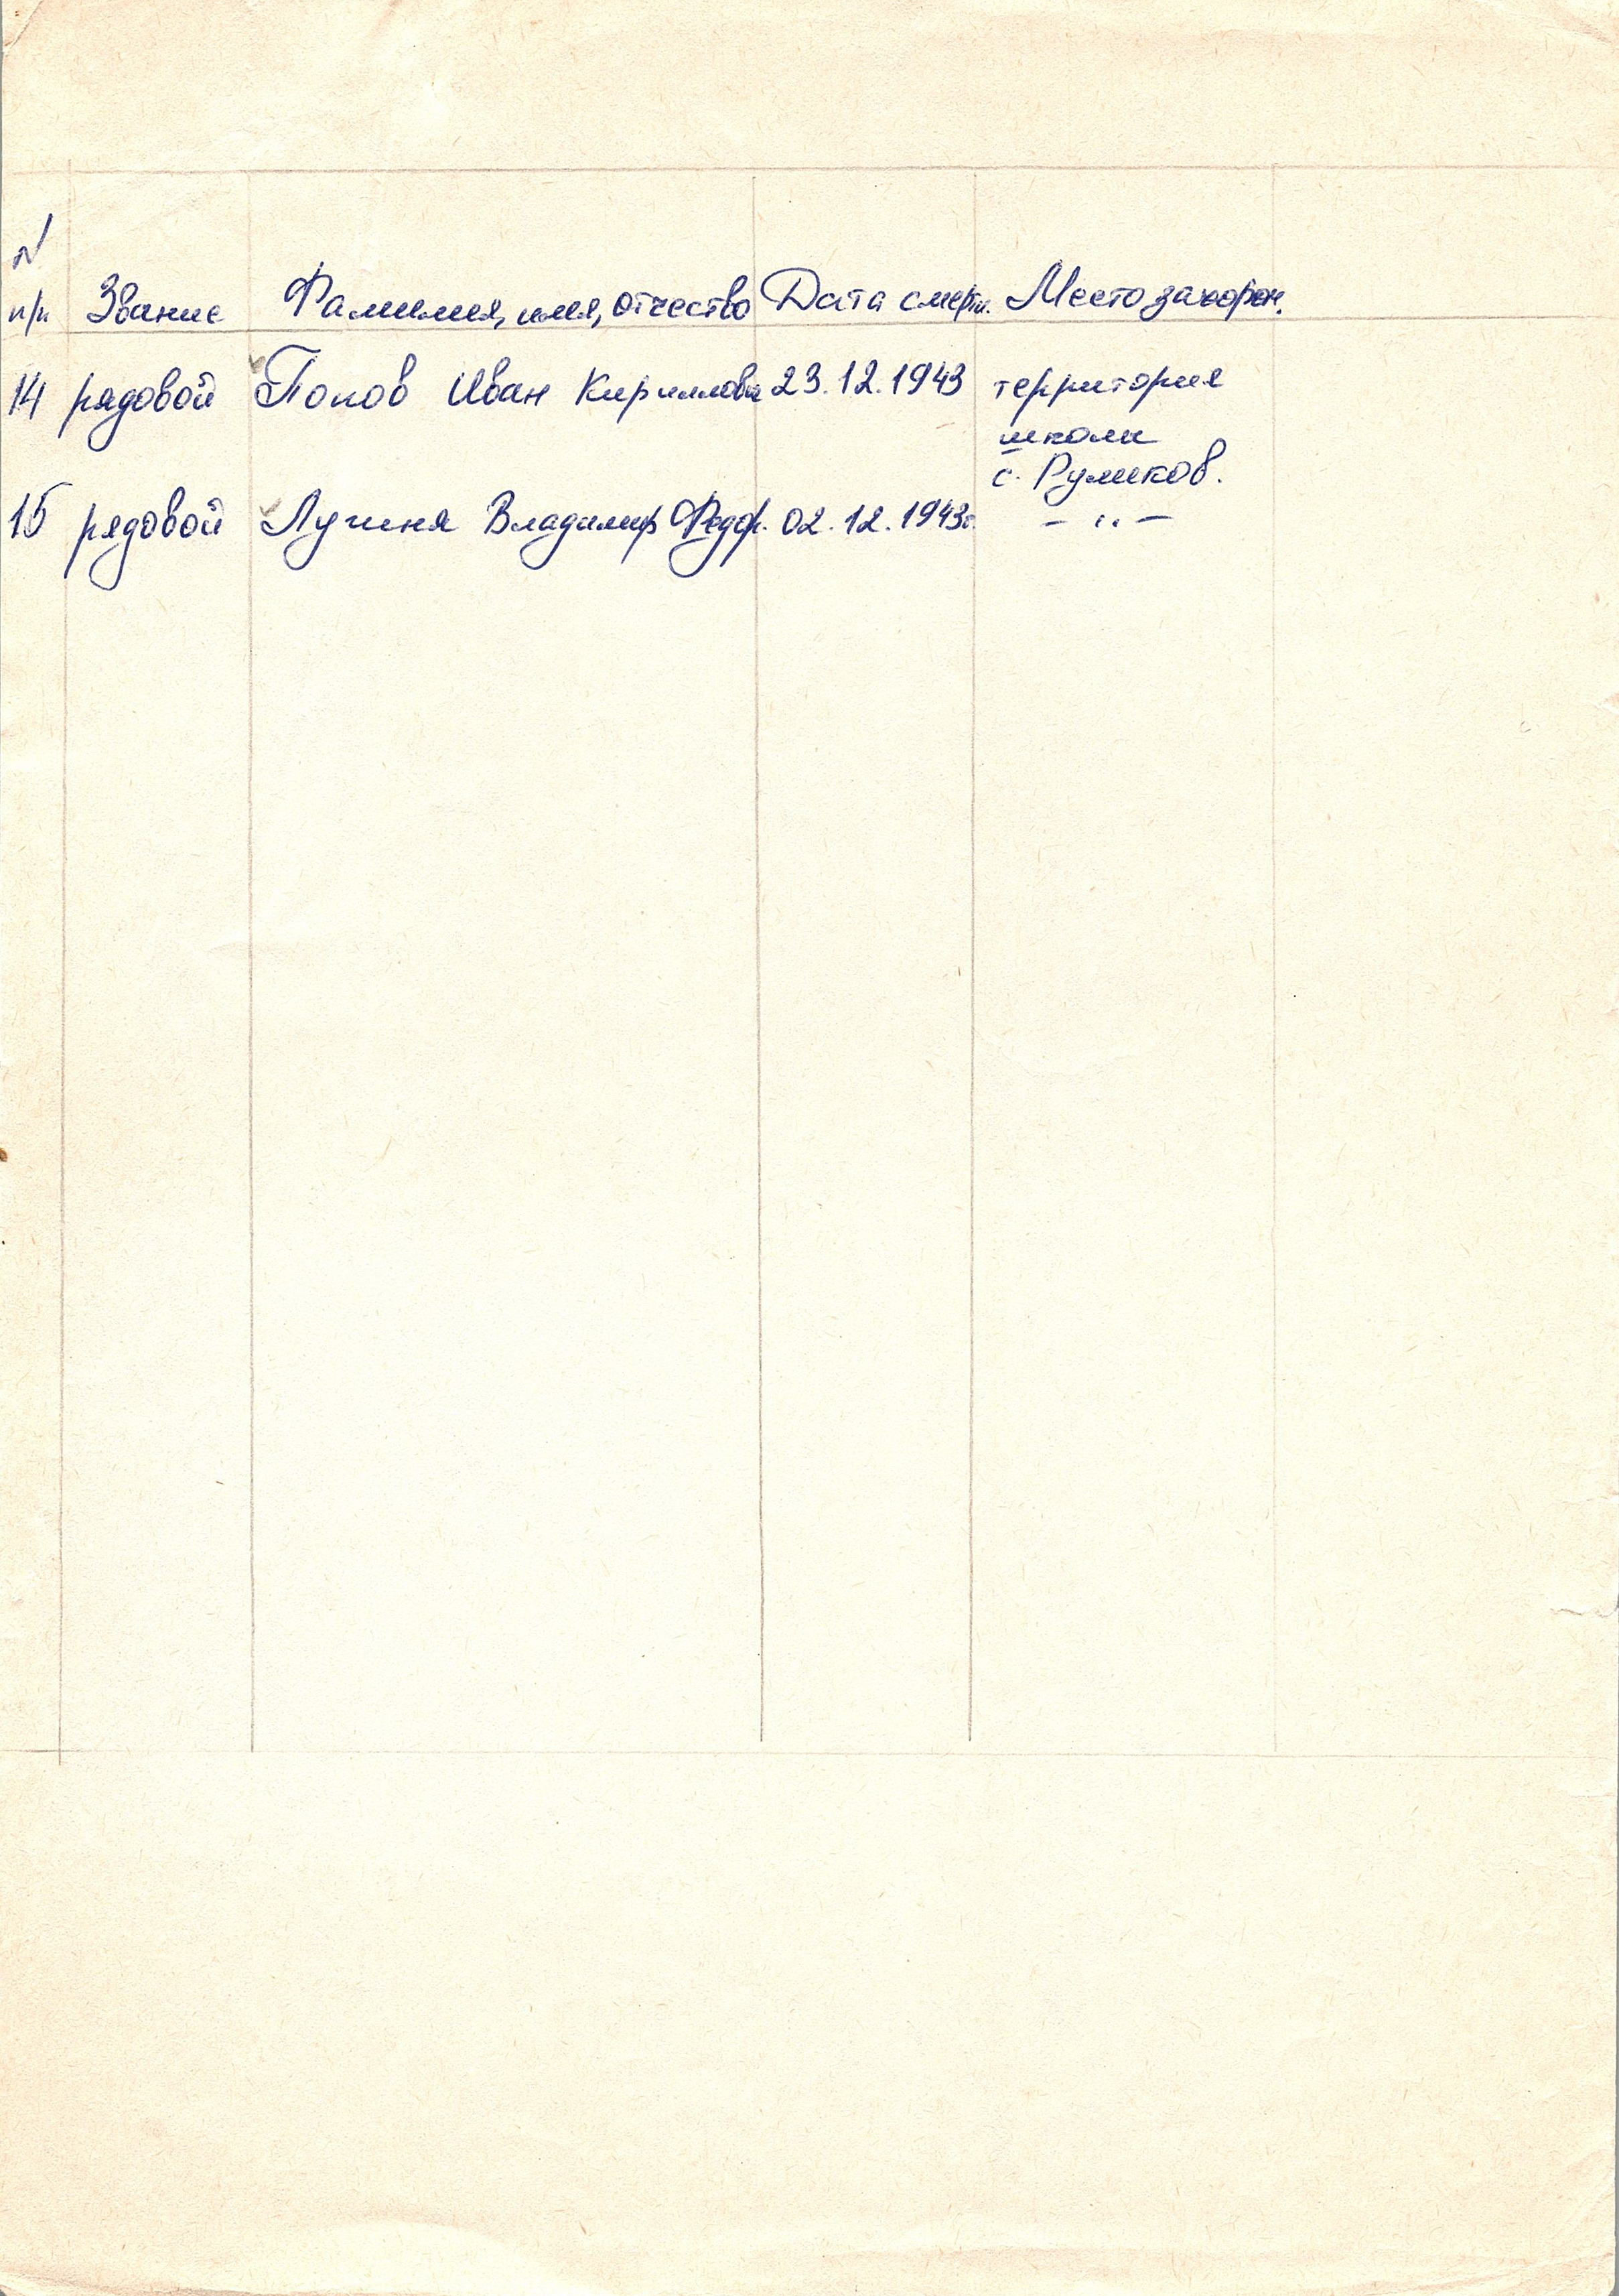 N
п/п Звание Фамилия, имя, отчество Дата смерти. Место захорон.
14 рядовой Попов Иван Кириллович 23.12.1943 территория
школы
с. Рушков.
15 рядовой Владимир Федор. 02.12.1943г. – " –